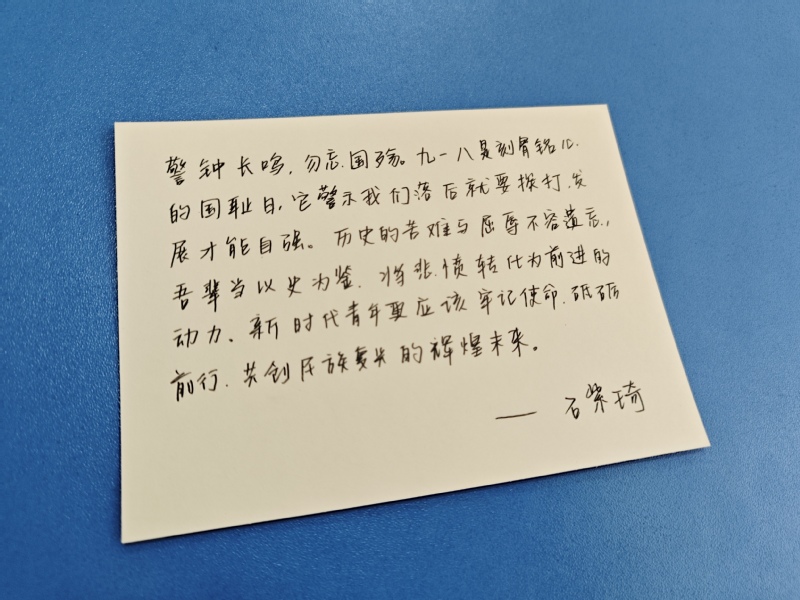 警钟长鸣，勿忘国殇。九一八是刻骨铭心
的国耻日，它警示我们落后就要挨打，发
展才能自强。历史的苦难与屈辱不容遗忘，
吾辈当以史为鉴，将悲愤转化为前进的
动力、新时代青年更应该牢记使命，砥砺
前行，共创民族复兴的辉煌未来。
—— 石紫琦